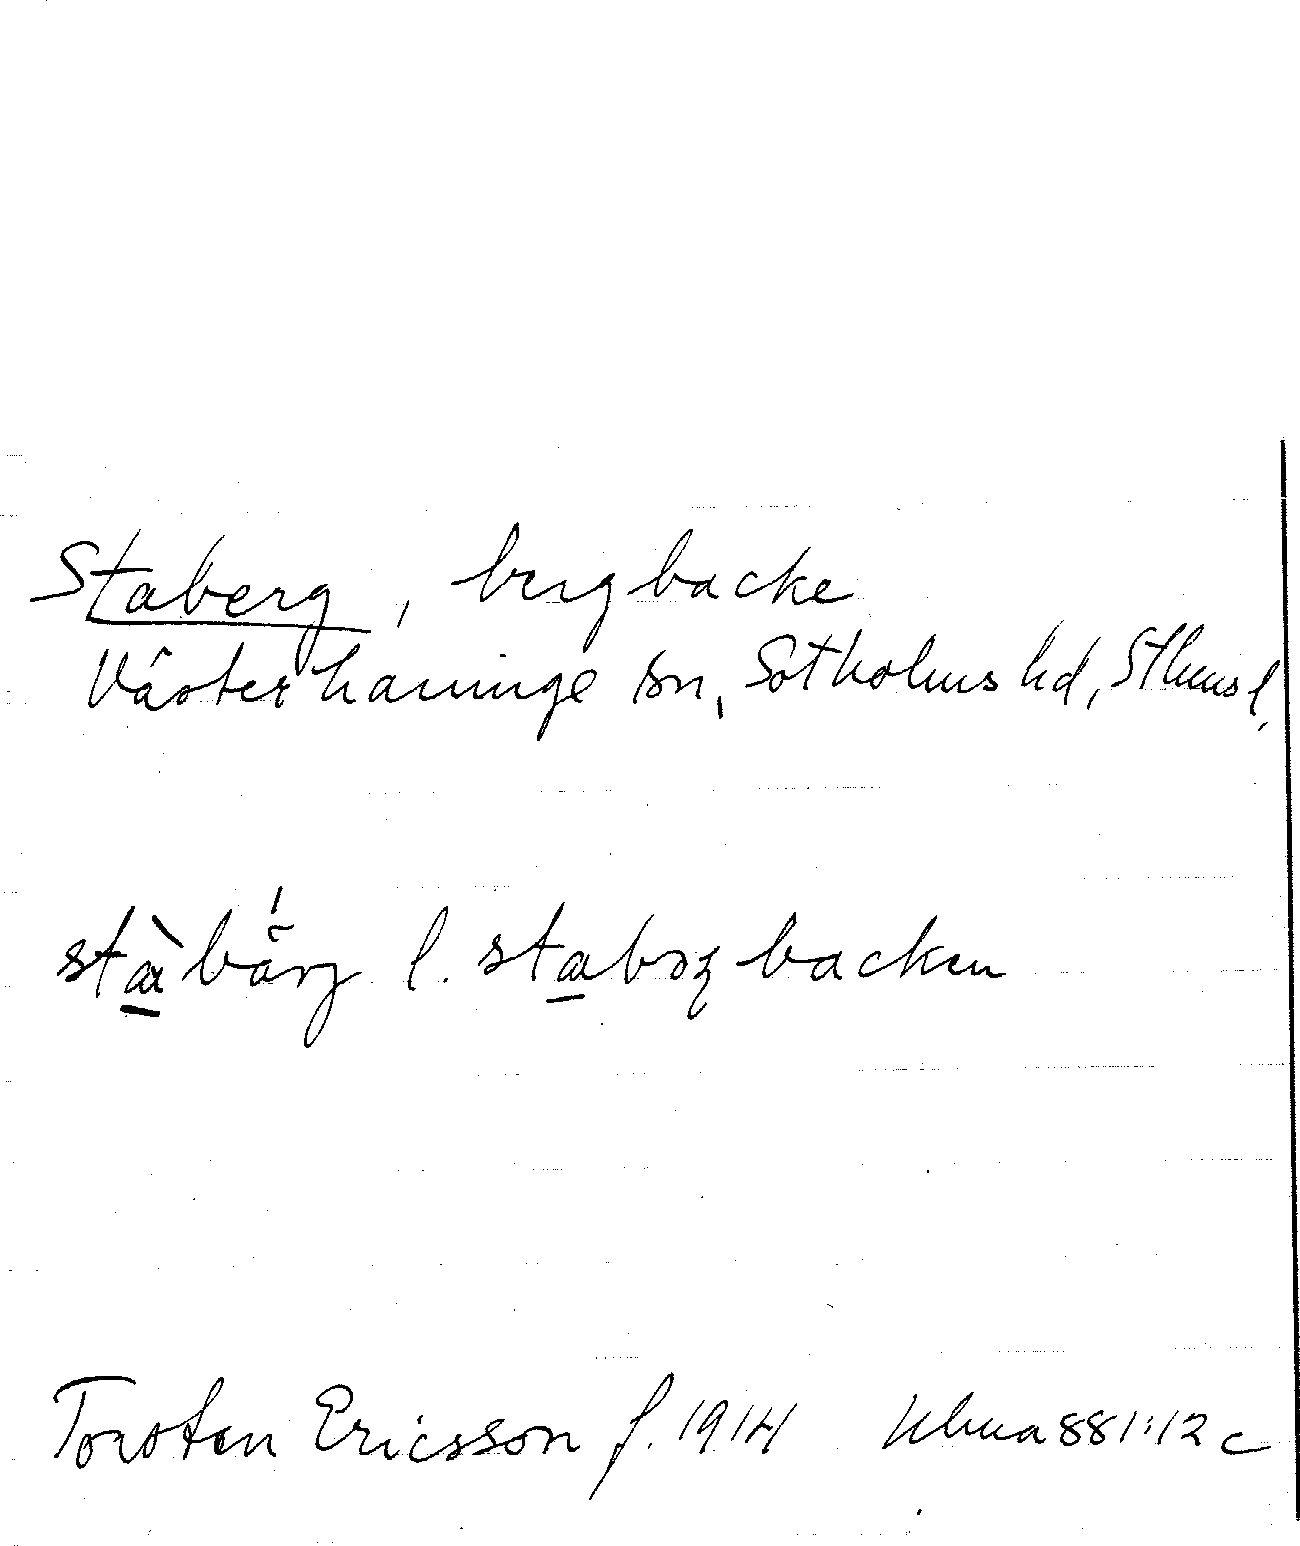 Staberg, bergbacke
Västerhaninge sn, Sotholms hd, Sthms l,
l. backen
Torsten Ericsson f. 1914 881:12 c